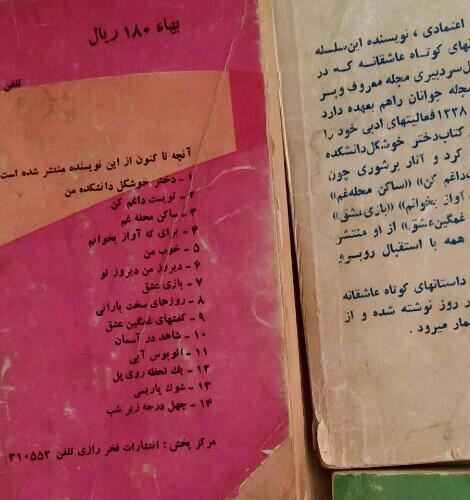 بهاء ۱۸۰ ریال
تلفن
آنچه تا کنون از این نویسنده منتشر شده است
۱ - دختر خوشگل دانشکده من
۲ - توبیست داغم کن
۳ - ساکن محله غم
۴ - برای که آواز بخوانم
۵ - خوب من
۶ - دیروز من دیروز تو
۷ - بازی عشق
۸ - روزهای سخت بارانی
۹ - کفشهای غمگین عشق
۱۰ - شاهد در آسمان
۱۱ - اتوبوس آبی
۱۲ - یک لحظه روی پل
۱۳ - شوک پاریسی
۱۴ - چهل درجه زیر شب
مرکز پخش : انتشارات فخر رازی تلفن ۳۱۰۵۵۲
اعتمادی ، نویسنده این سلسله
های کوتاه عاشقانه که در
سردبیری مجله معروف و پر
مجله جوانان راهم بعهده دارد
۱۳۳۸ فعالیتهای ادبی خود را
کتاب دختر خوشگل دانشکده
کرد و آثار پرشوری چون
داغم کن» «ساکن محله غم»
آواز بخوانم» «بازی عشق»
غمگین عشق» از او منتشر
همه با استقبال روبرو
داستانهای کوتاه عاشقانه
روز نوشته شده و از
شمار میرود .